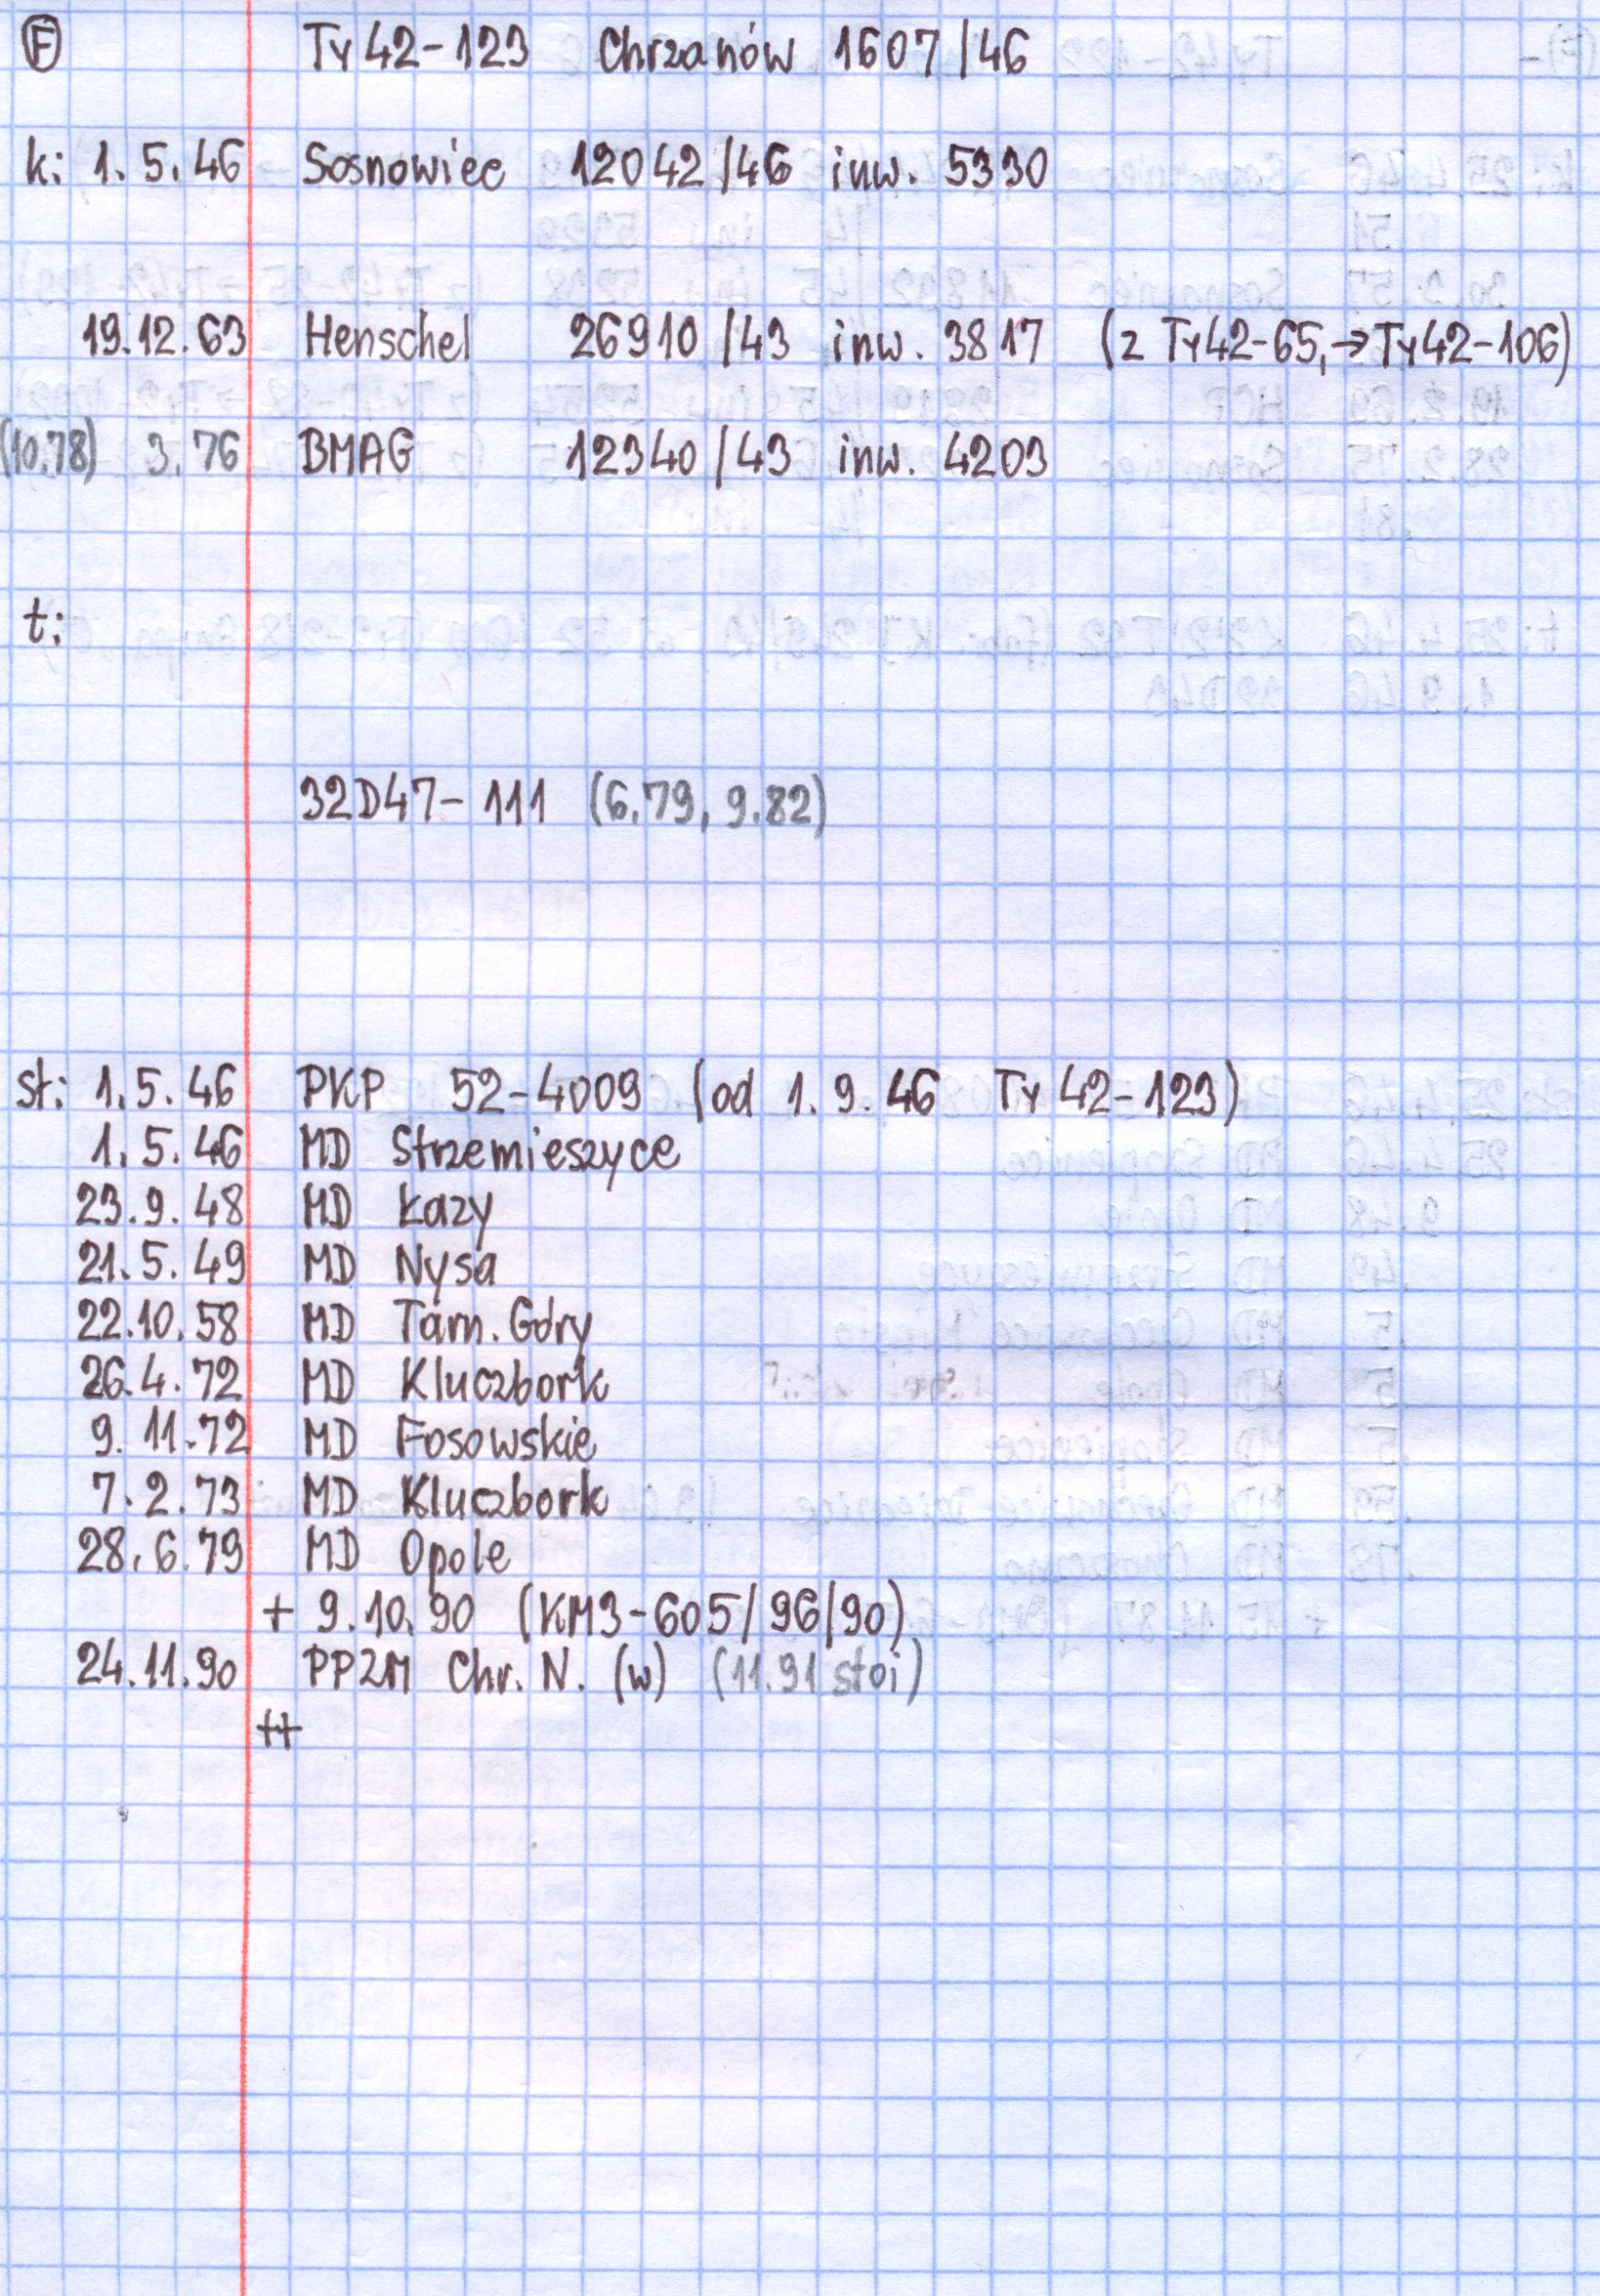 F Ty42-123 Chrzanów 1607/46
k: 1.5.46 Sosnowiec 12042/46 inw. 5330
19.12.63 Henschel 26910/43 inw. 3817 (z Ty42-65, → Ty42-106)
(10.78) 3.76 BMAG 12340/43 inw. 4203
t:
32D47-111 (6.79, 9.82)
st: 1.5.46 PKP 52-4009 (od 1.9.46 Ty42-123)
1.5.46 MD Strzemieszyce
23.9.48 MD Łazy
21.5.49 MD Nysa
22.10.58 MD Tarn. Góry
26.4.72 MD Kluczbork
9.11.72 MD Fosowskie
7.2.73 MD Kluczbork
28.6.79 MD Opole
+ 9.10.90 (KM3-605/96/90)
24.11.90 PPZM Chr. N. (w) (11.91 stoi)
++